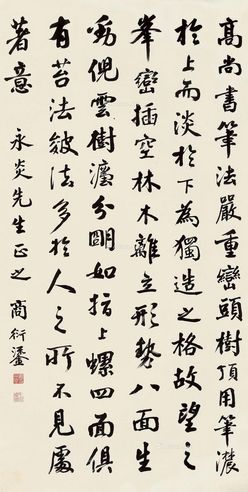 高尚書筆法嚴重巒頭樹頂用筆濃
於上而淡於下為獨造之格故望之
峯巒插空林木離立形勢八面生
動倪雲樹濃分明如指上螺四面俱
有苔法皴法多於人之所不見處
著意
永炎先生正之 商衍鎏